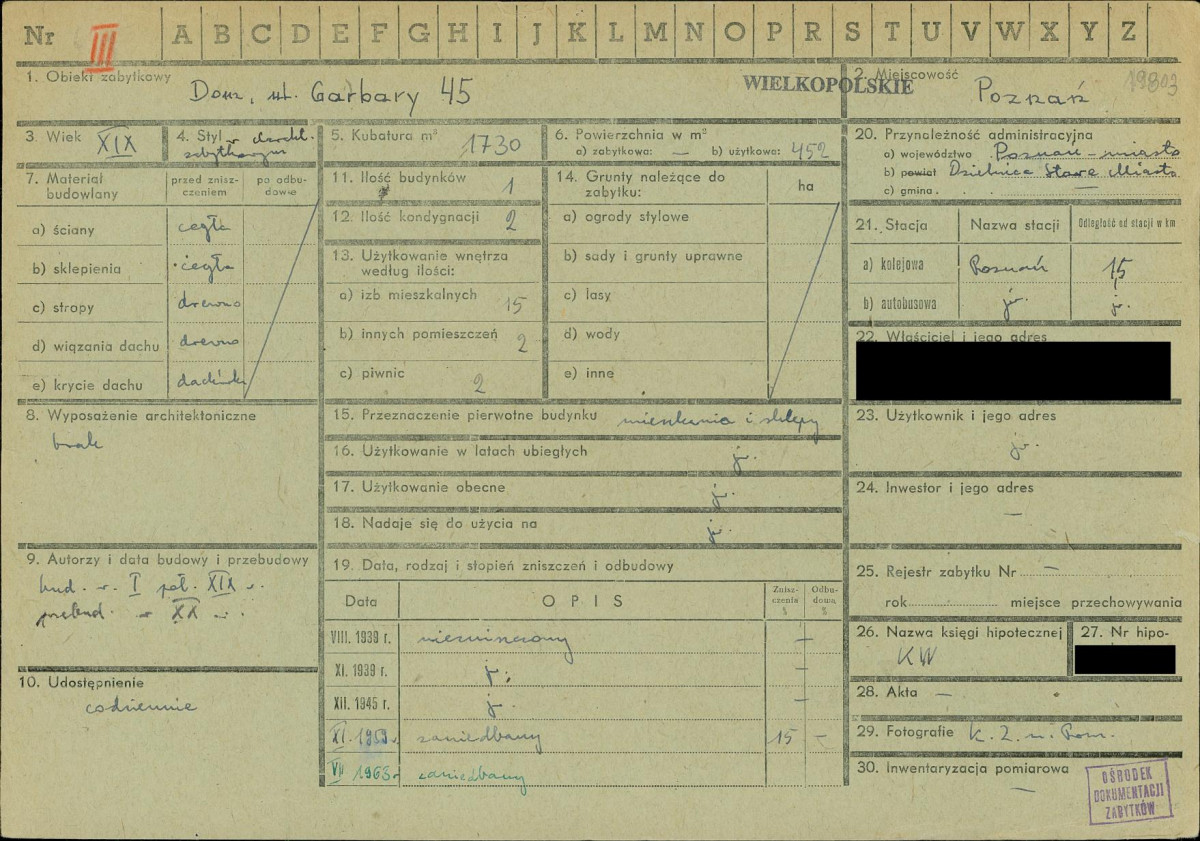 Nr III A B C D E F G H I J K L M N O P R S T U V W X Y Z
1. Obiekt zabytkowy
Dom, ul. Garbary 45
WIELKOPOLSKIE
2. Miejscowość
Poznań
19803
3. Wiek XIX
4. Styl o charakt.
zabytkowym
5. Kubatura m³ 1730
6. Powierzchnia w m²
a) zabytkowa: — b) użytkowa: 452
7. Materiał budowlany
przed znisz-
czeniem
po odbu-
dowie
a) ściany cegła
b) sklepienia cegła
c) stropy drewno
d) wiązania dachu drewno
e) krycie dachu dachówka
8. Wyposażenie architektoniczne
brak
9. Autorzy i data budowy i przebudowy
bud. w I poł. XIX w.
przebud. w XX w.
10. Udostępnienie
codziennie
11. Ilość budynków 1
12. Ilość kondygnacji 2
13. Użytkowanie wnętrza
według ilości:
a) izb mieszkalnych 15
b) innych pomieszczeń 2
c) piwnic 2
14. Grunty należące do
zabytku:
ha
a) ogrody stylowe
b) sady i grunty uprawne
c) lasy
d) wody
e) inne
15. Przeznaczenie pierwotne budynku mieszkania i sklepy
16. Użytkowanie w latach ubiegłych j.
17. Użytkowanie obecne j.
18. Nadaje się do użycia na j.
19. Data, rodzaj i stopień zniszczeń i odbudowy
Data OPIS Znisz-
czenia
% Odbu-
dowa
%
VIII. 1939 r. niezniszczony —
XI. 1939 r. j. —
XII. 1945 r. j. —
XI. 1959 r. zaniedbany 15 —
VII 1963 r. zaniedbany
20. Przynależność administracyjna
a) województwo Poznań - miasto
b) powiat Dzielnica Stare Miasto
c) gmina. —
21. Stacja Nazwa stacji Odległość od stacji w km
a) kolejowa Poznań 1,5
b) autobusowa j. j.
22. Właściciel i jego adres
23. Użytkownik i jego adres
j.
24. Inwestor i jego adres
—
25. Rejestr zabytku Nr —
rok miejsce przechowywania
26. Nazwa księgi hipotecznej
KW
27. Nr hipo-
28. Akta —
29. Fotografie K. Z. m. Pozn.
30. Inwentaryzacja pomiarowa
—
OŚRODEK
DOKUMENTACJI
ZABYTKÓW